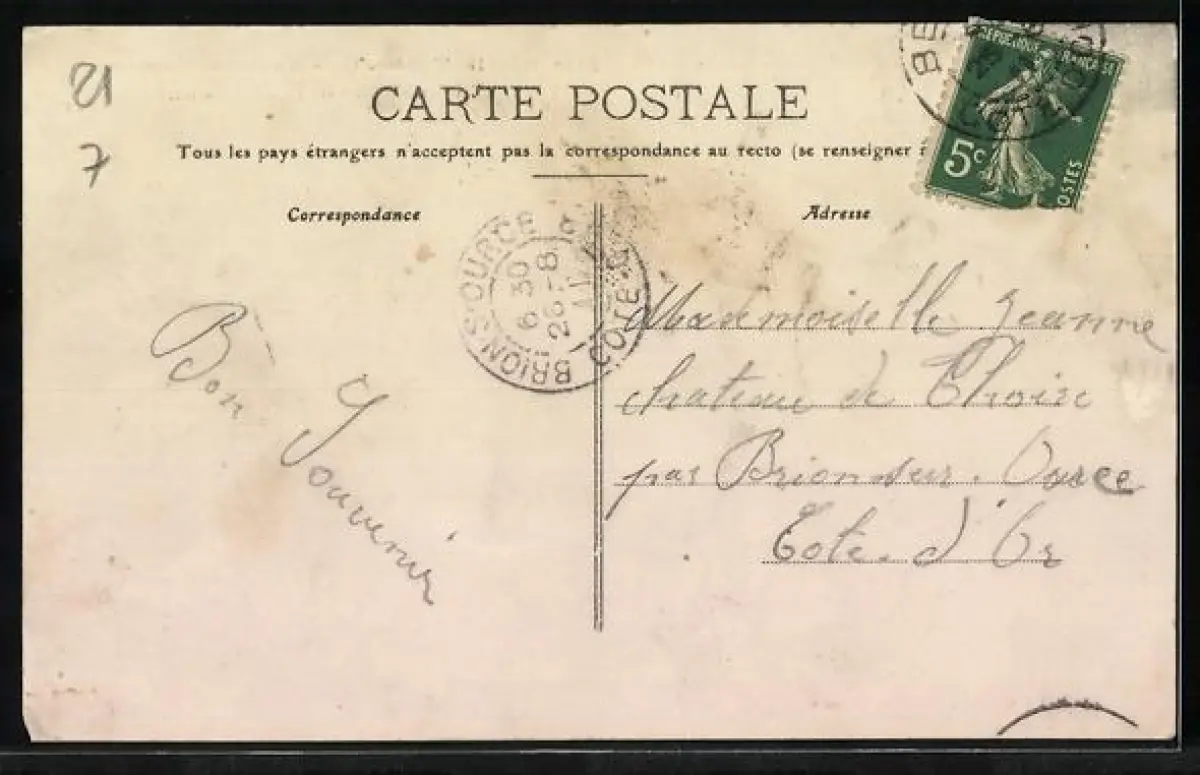 21
7
CARTE POSTALE
Tous les pays étrangers n'acceptent pas la correspondance au recto (se renseigner
Correspondance
Adresse
RÉPUBLIQUE FRANÇAISE
5c
POSTES
BRION-S-OURCE
6 30
26 - 8
COTE-D
Bon
Souvenir
Mademoiselle Jeanne
chateau de Thoire
par Brion sur Ource
Cote d'Or